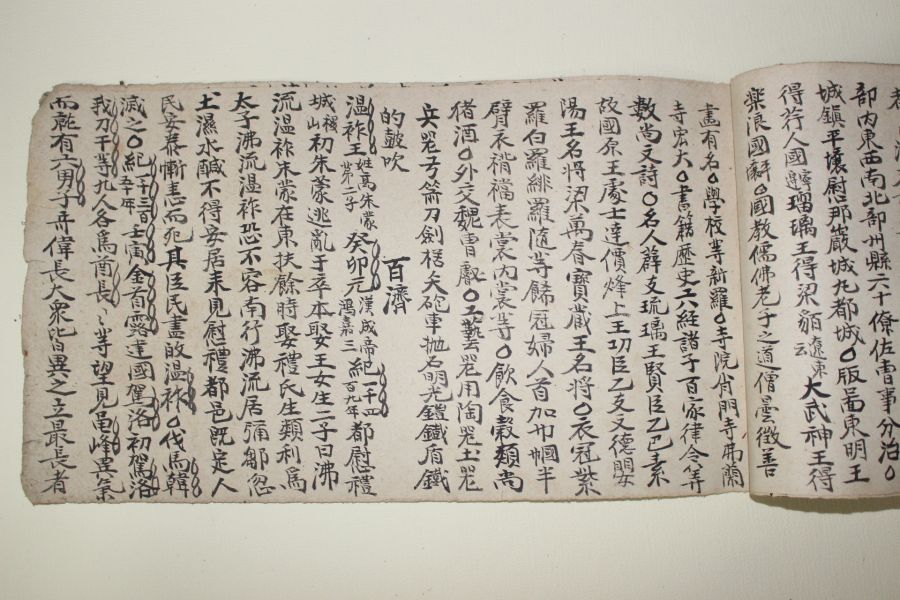 部內東西南北部州縣六十僚佐曹事分治○
城鎮平壤慰那巖城九都城○版啚東明王
得荇人國 瑠璃王得梁貊云 遼東 大武神王得
樂浪國辭○國敎儒佛老子之道僧曇徵善
畵有名○學校等新羅○寺院肖門寺弗蘭
寺宏大○書籍歷史六經諸子百家律令等
數尚文詩○名人薛支琉璃王賢臣乙巴素
故國原王處士達價烽上王功臣乙支文德嬰
陽王名將梁萬春寶藏王名將○衣冠紫
羅白羅緋羅隨等餙冠婦人首加巾幗半
臂衣褙襠表裳內裳等○飮食穀類尚
猪酒○外交魏曹獻○工藝器用陶器土器
兵器弓箭刀劍 矢砲車抛石明光鎧鐵盾鐵
的鼓吹
百濟
溫祚王 姓高朱蒙第二子 癸卯元 漢成帝鴻嘉三 紀一千四百九年 都慰禮
城 稷山 初朱蒙逃亂于卒本娶王女生二子曰沸
流溫祚朱蒙在東扶餘時娶禮氏生類利爲
太子沸流溫祚恐不容南行沸流居彌鄒忽
土濕水鹹不得安居來見慰禮都邑旣定人
民安泰慚恚而死其臣民盡故溫祚○伐馬韓
滅之○紀二千三百五十年 壬寅金首露建國駕洛初駕洛
我刀干等九人各爲酋長〻等望見龜峰異氣
而就有六男子奇偉長大衆皆異之立最長者